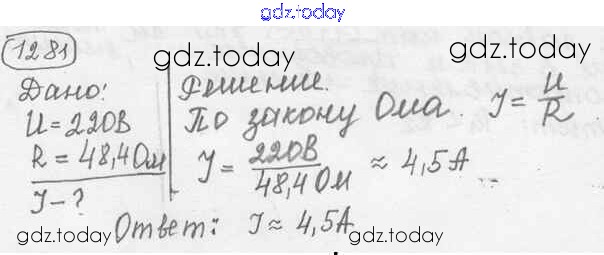 gdz.today
1281
gdz.today
gdz.today
Дано:
U = 220В
R = 48,4 Ом
J - ?
Решение.
По закону Ома J = U/R
J = 220В/48,4 Ом ≈ 4,5А
Ответ: J ≈ 4,5А.
gdz.today
gdz.today